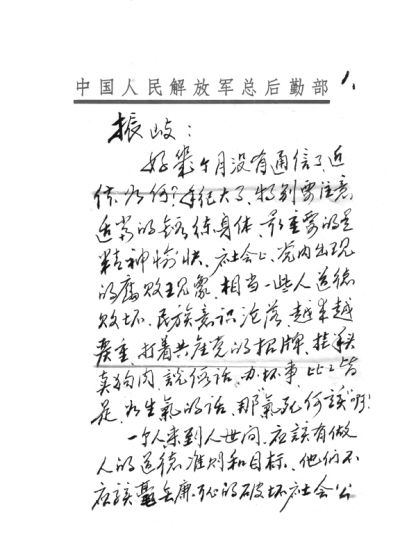 中国人民解放军总后勤部
1.
振岐：
好幾个月没有通信了，近
体如何？年纪大了，特别要注意
适当的鍛练身体，最重要的是
精神愉快。社会上、党内出现
的腐败现象，相当一些人道德
败坏、民族意识沦落，越来越
严重，打着共产党的招牌，挂羊头
卖狗肉，説假话，办坏事，比比皆
是，为生氣的话，那"氣死何該"啊！
一个人来到人世间，应該有做
人的道德准则和目标，他们不
应該毫无廉耻的破坏社会公